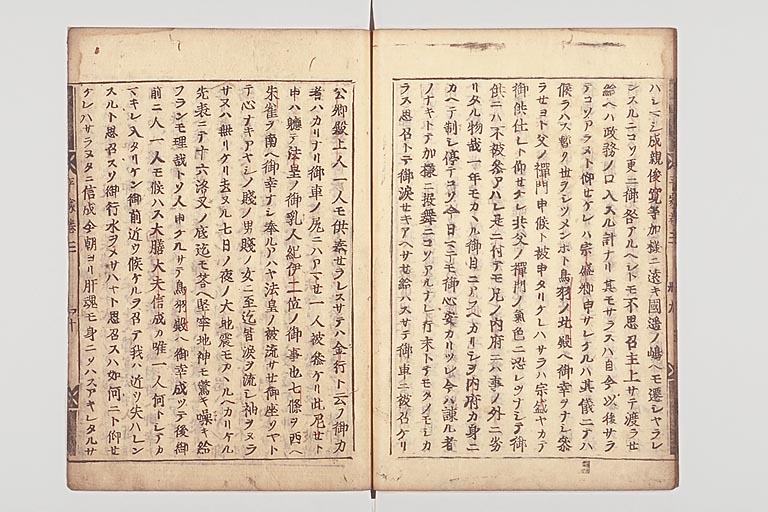 ハンヘシ成親俊寛等加様ニ遠キ國遣ノ嶋ヘモ遷シヤラレ
ンスルニコソ更ニ御咎アルヘシトモ不思召主上サテ渡ラセ
給ヘハ政務ノ口入スル計ナリ其モサラスハ自今以後サラ
テコソアラメト仰セケレハ宗盛卿申サレケルハ其儀ニテハ
候ラハス暫ク世ヲシツメンホト鳥羽ノ北殿ヘ御幸ヲナシ参
ラセヨト父ノ禪門申候ト被申タリケレハサラハ宗盛ヤカテ
御供仕レト仰セケレ共父ノ禪門ノ氣色ニ恐レヲナシテ御
供ニハ不被参アハレ是ニ付テモ兄ノ内府ニハ事ノ外ニ劣
リタル物哉一年モカヽル御目ニアフヘカリシヲ内府カ身ニ
カヘテ制シ停テコソ今日マテモ御心安カリツレ今ハ諫ル者
ノナキトテ加様ニ振舞ニコソアルナレ行末トテモタノモシカ
ラス思召トテ御涙セキアヘサセ給ハスサテ御車ニ被召ケリ
公卿殿上人一人モ供奉セラレスサテハ金行ト云ノ御力
者ハカリナリ御車ノ尻ニハアマセ一人被参ケリ此尼セト
申ハ軈テ法皇ノ御乳人紀伊二位ノ御事也七條ヲ西ヘ
朱雀ヲ南ヘ御幸ナシ奉ルアハヤ法皇ノ被流サセ御座ソヤト
テ心ナキアヤシノ賤ノ男賤ノ女ニ至迄皆涙ヲ流シ袖ヲヌラ
サヌハ無リケリ去ヌル七日ノ夜ノ大地震モカヽルヘカリケル
先表ニテ十六洛叉ノ底迄モ答ヘ堅牢地神モ驚キ噪キ給
フランモ理哉トソ人申ケルサテ鳥羽殿ヘ御幸成ツテ後御
前ニ人一人モ候ハス大膳大夫信成カ唯一人何トシテカ
マキレ入タリケン御前近ツ候ケルヲ召テ我ハ近ツ失ハレン
スルト思召スソ御行水ヲメサハヤト思召スハ如何ニト仰セ
ケレハサラヌタニ信成今朝ヨリ肝魂モ身ニソハスアキレタルサ